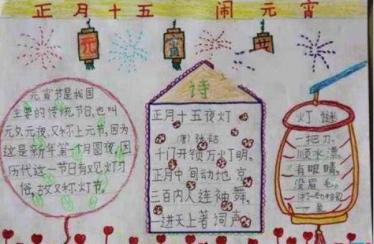 正月十五 闹元宵
元
宵
节
元宵节是我国
主要的传统节日,也叫
元夕、元夜,又称上元节,因为
这是新年第一个月圆夜,因
历代这一节日有观灯习
俗,故又称灯节。
诗
正月十五夜灯
张祜
千门开锁万灯明,
正月中旬动地京
三百内人连袖舞,
一进天上著词声
灯谜
一把刀,
顺水漂,
有眼睛,
没眉毛。